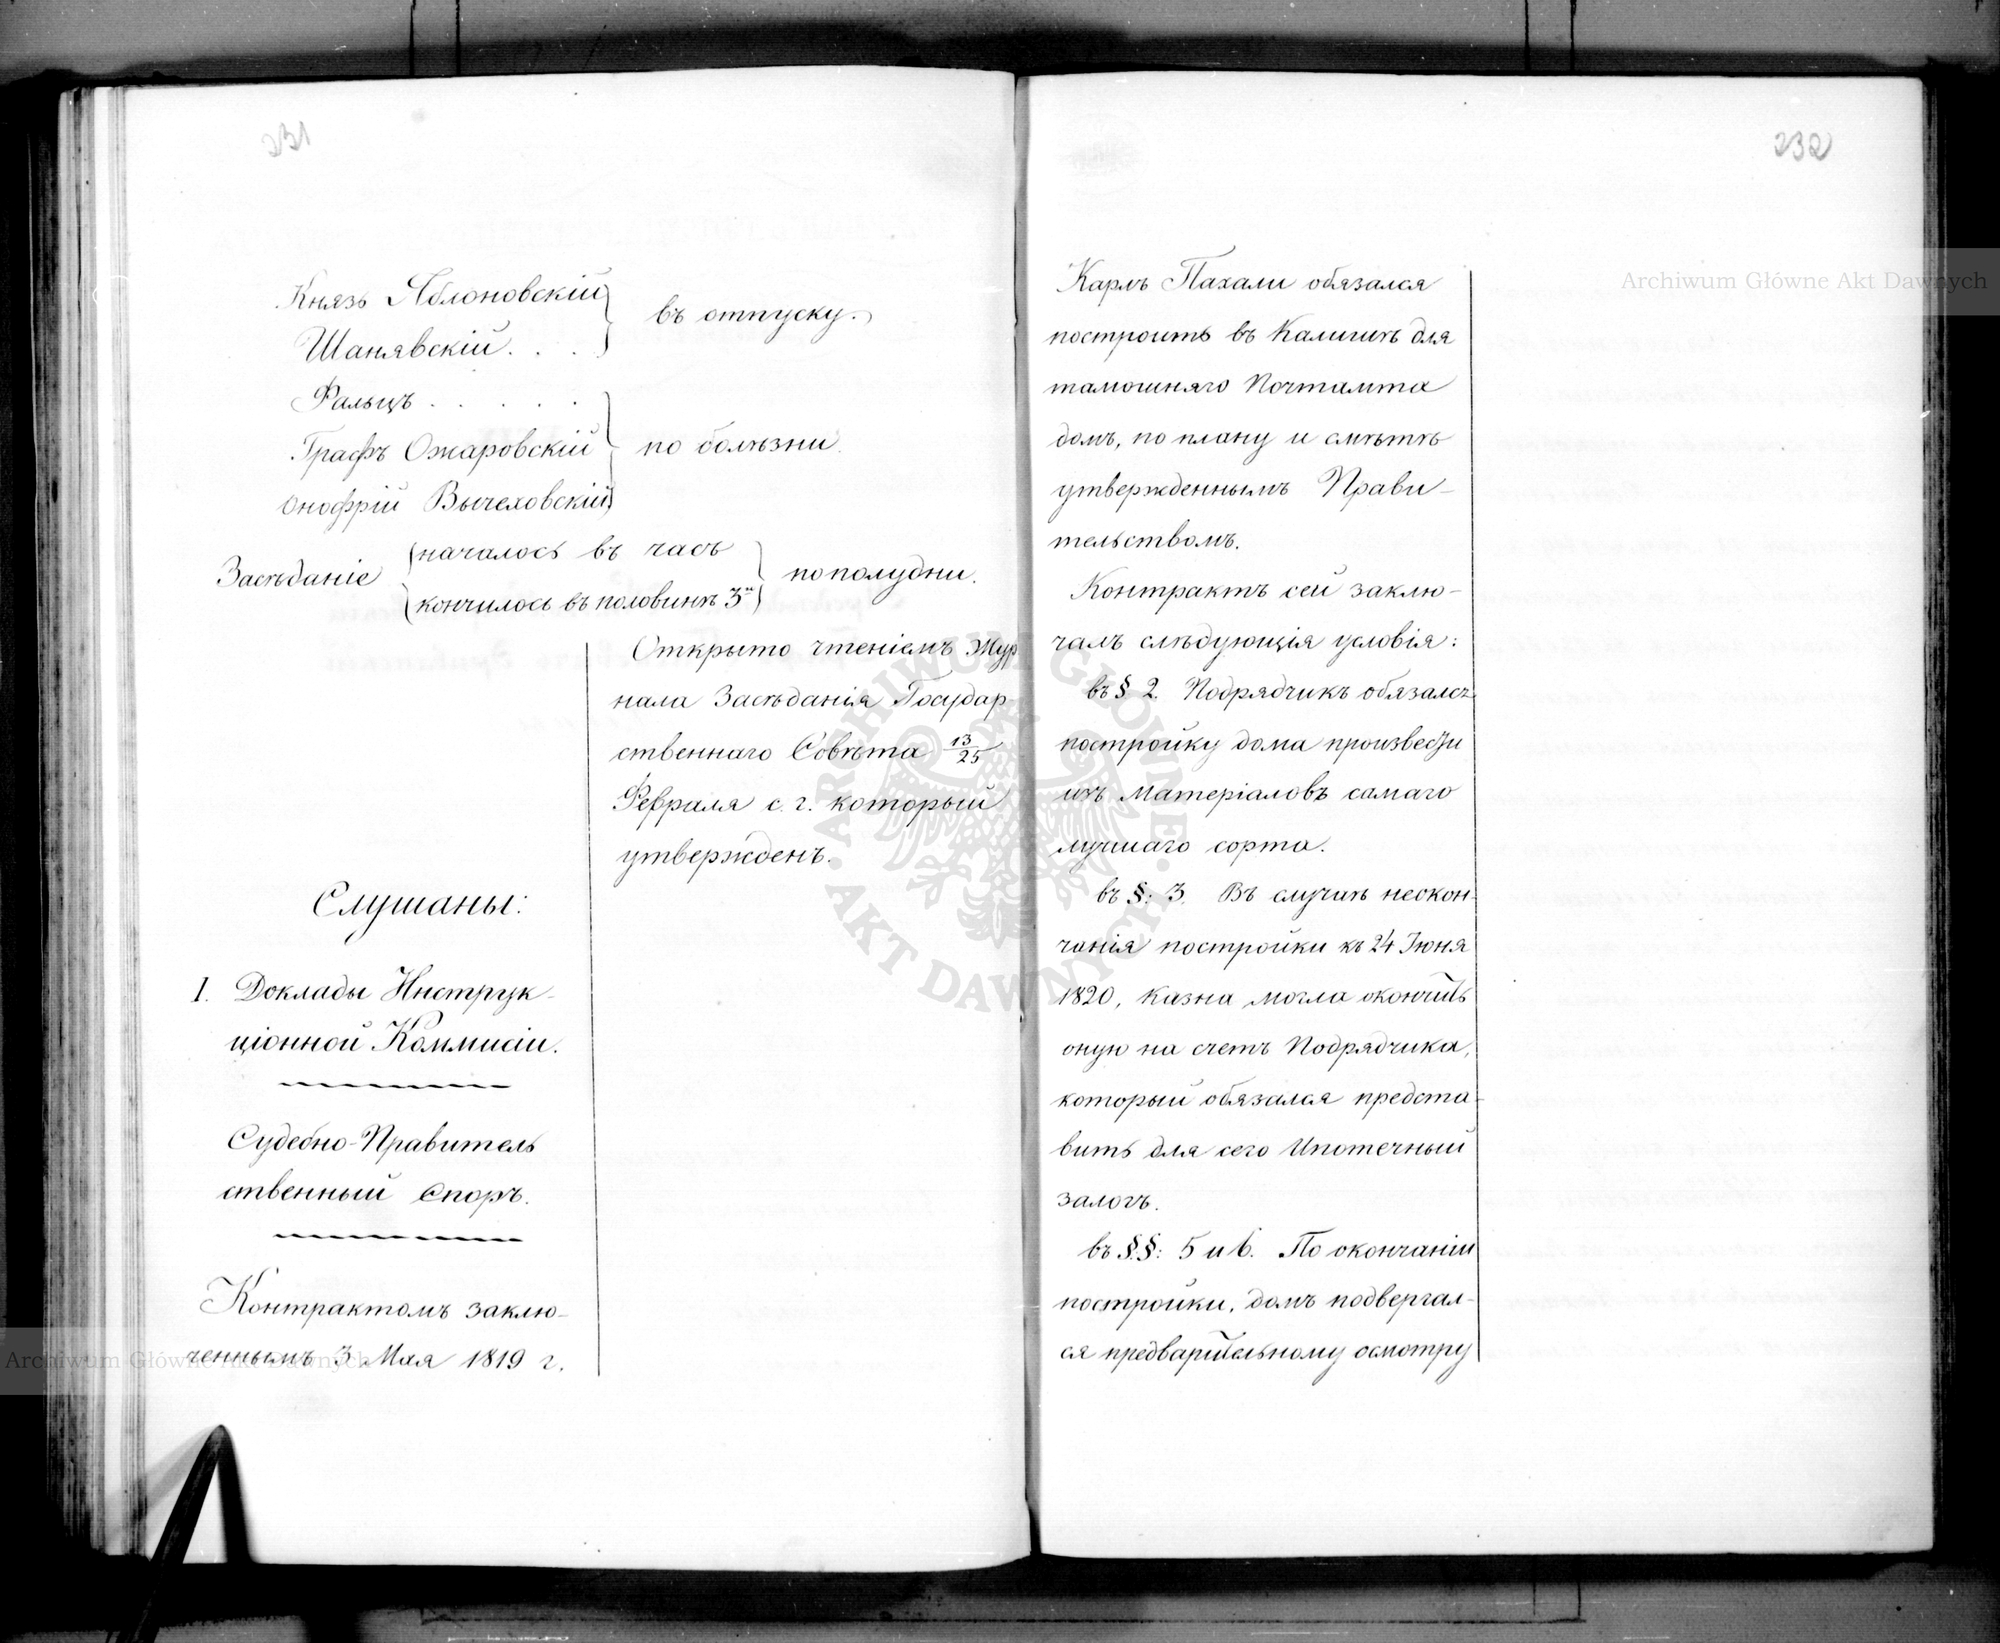 231
Князь Яблоновскій
Шанявскій . . .
въ отпуску.
Фальцъ . . . . .
Графъ Ожаровскій
Онофрій Вычеховскій
по болѣзни.
Засѣданіе
началось въ часъ
кончилось въ половинѣ 3й
по полудни.
Открыто чтеніемъ Жур
нала Засѣданія Государ-
ственнаго Совѣта 13/25
Февраля с. г. который
утвержденъ.
Слушаны:
I. Доклады Инструк-
ціонной Коммисіи.
Судебно-Правитель
ственный Споръ.
Контрактомъ заклю-
ченнымъ 3 Мая 1819 г.
232
Карлъ Пахали обязался
построить въ Калишѣ для
тамошняго Почтамта
домъ, по плану и смѣтѣ
утвержденнымъ Прави-
тельствомъ.
Контрактъ сей заклю-
чалъ слѣдующія условія:
въ § 2. Подрядчикъ обязался
постройку дома произвести
изъ Матеріаловъ самаго
лучшаго сорта.
въ §: 3. Въ случаѣ нескон-
чанія постройки къ 24 Іюня
1820, Казна могла окончить
оную на счетъ Подрядчика,
который обязался предста-
вить для сего Ипотечный
залогъ.
въ §.§: 5 и 6. По окончаніи
постройки, домъ подвергал-
ся предварительному осмотру
Archiwum Główne Akt Dawnych
Archiwum Główne Akt Dawnych
ARCHIWUM GŁÓWNE AKT DAWNYCH